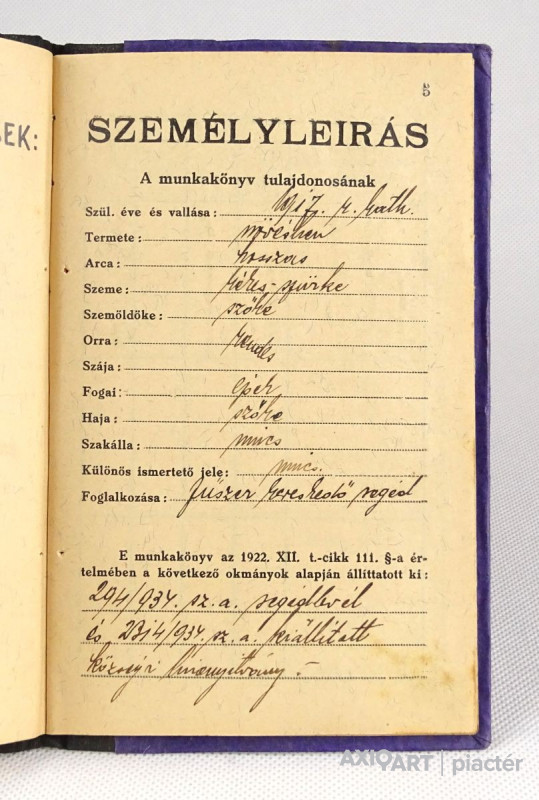 SEK:
5
SZEMÉLYLEIRÁS
A munkakönyv tulajdonosának
Szül. éve és vallása: 1917. r. kath.
Termete: növésben
Arca: hosszas
Szeme: kékes-szürke
Szemöldöke: szőke
Orra: rendes
Szája:
Fogai: épek
Haja: szőke
Szakálla: nincs
Különös ismertető jele: nincs.
Foglalkozása: Fűszer kereskedő segéd
E munkakönyv az 1922. XII. t.-cikk 111. §-a ér-
telmében a következő okmányok alapján állíttatott ki:
294/934. sz. a. segédlevél
és 2314/934. sz. a. kiállított
községi bizonyítvány.-
AXIOART | piactér